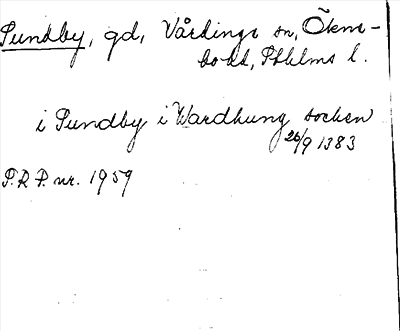 Sundby, gd, Vårdinge sn, Öknebo hd, Sthlms l.
i Sundby i Wardhung socken
26/9 1383
S.R.P. nr. 1959